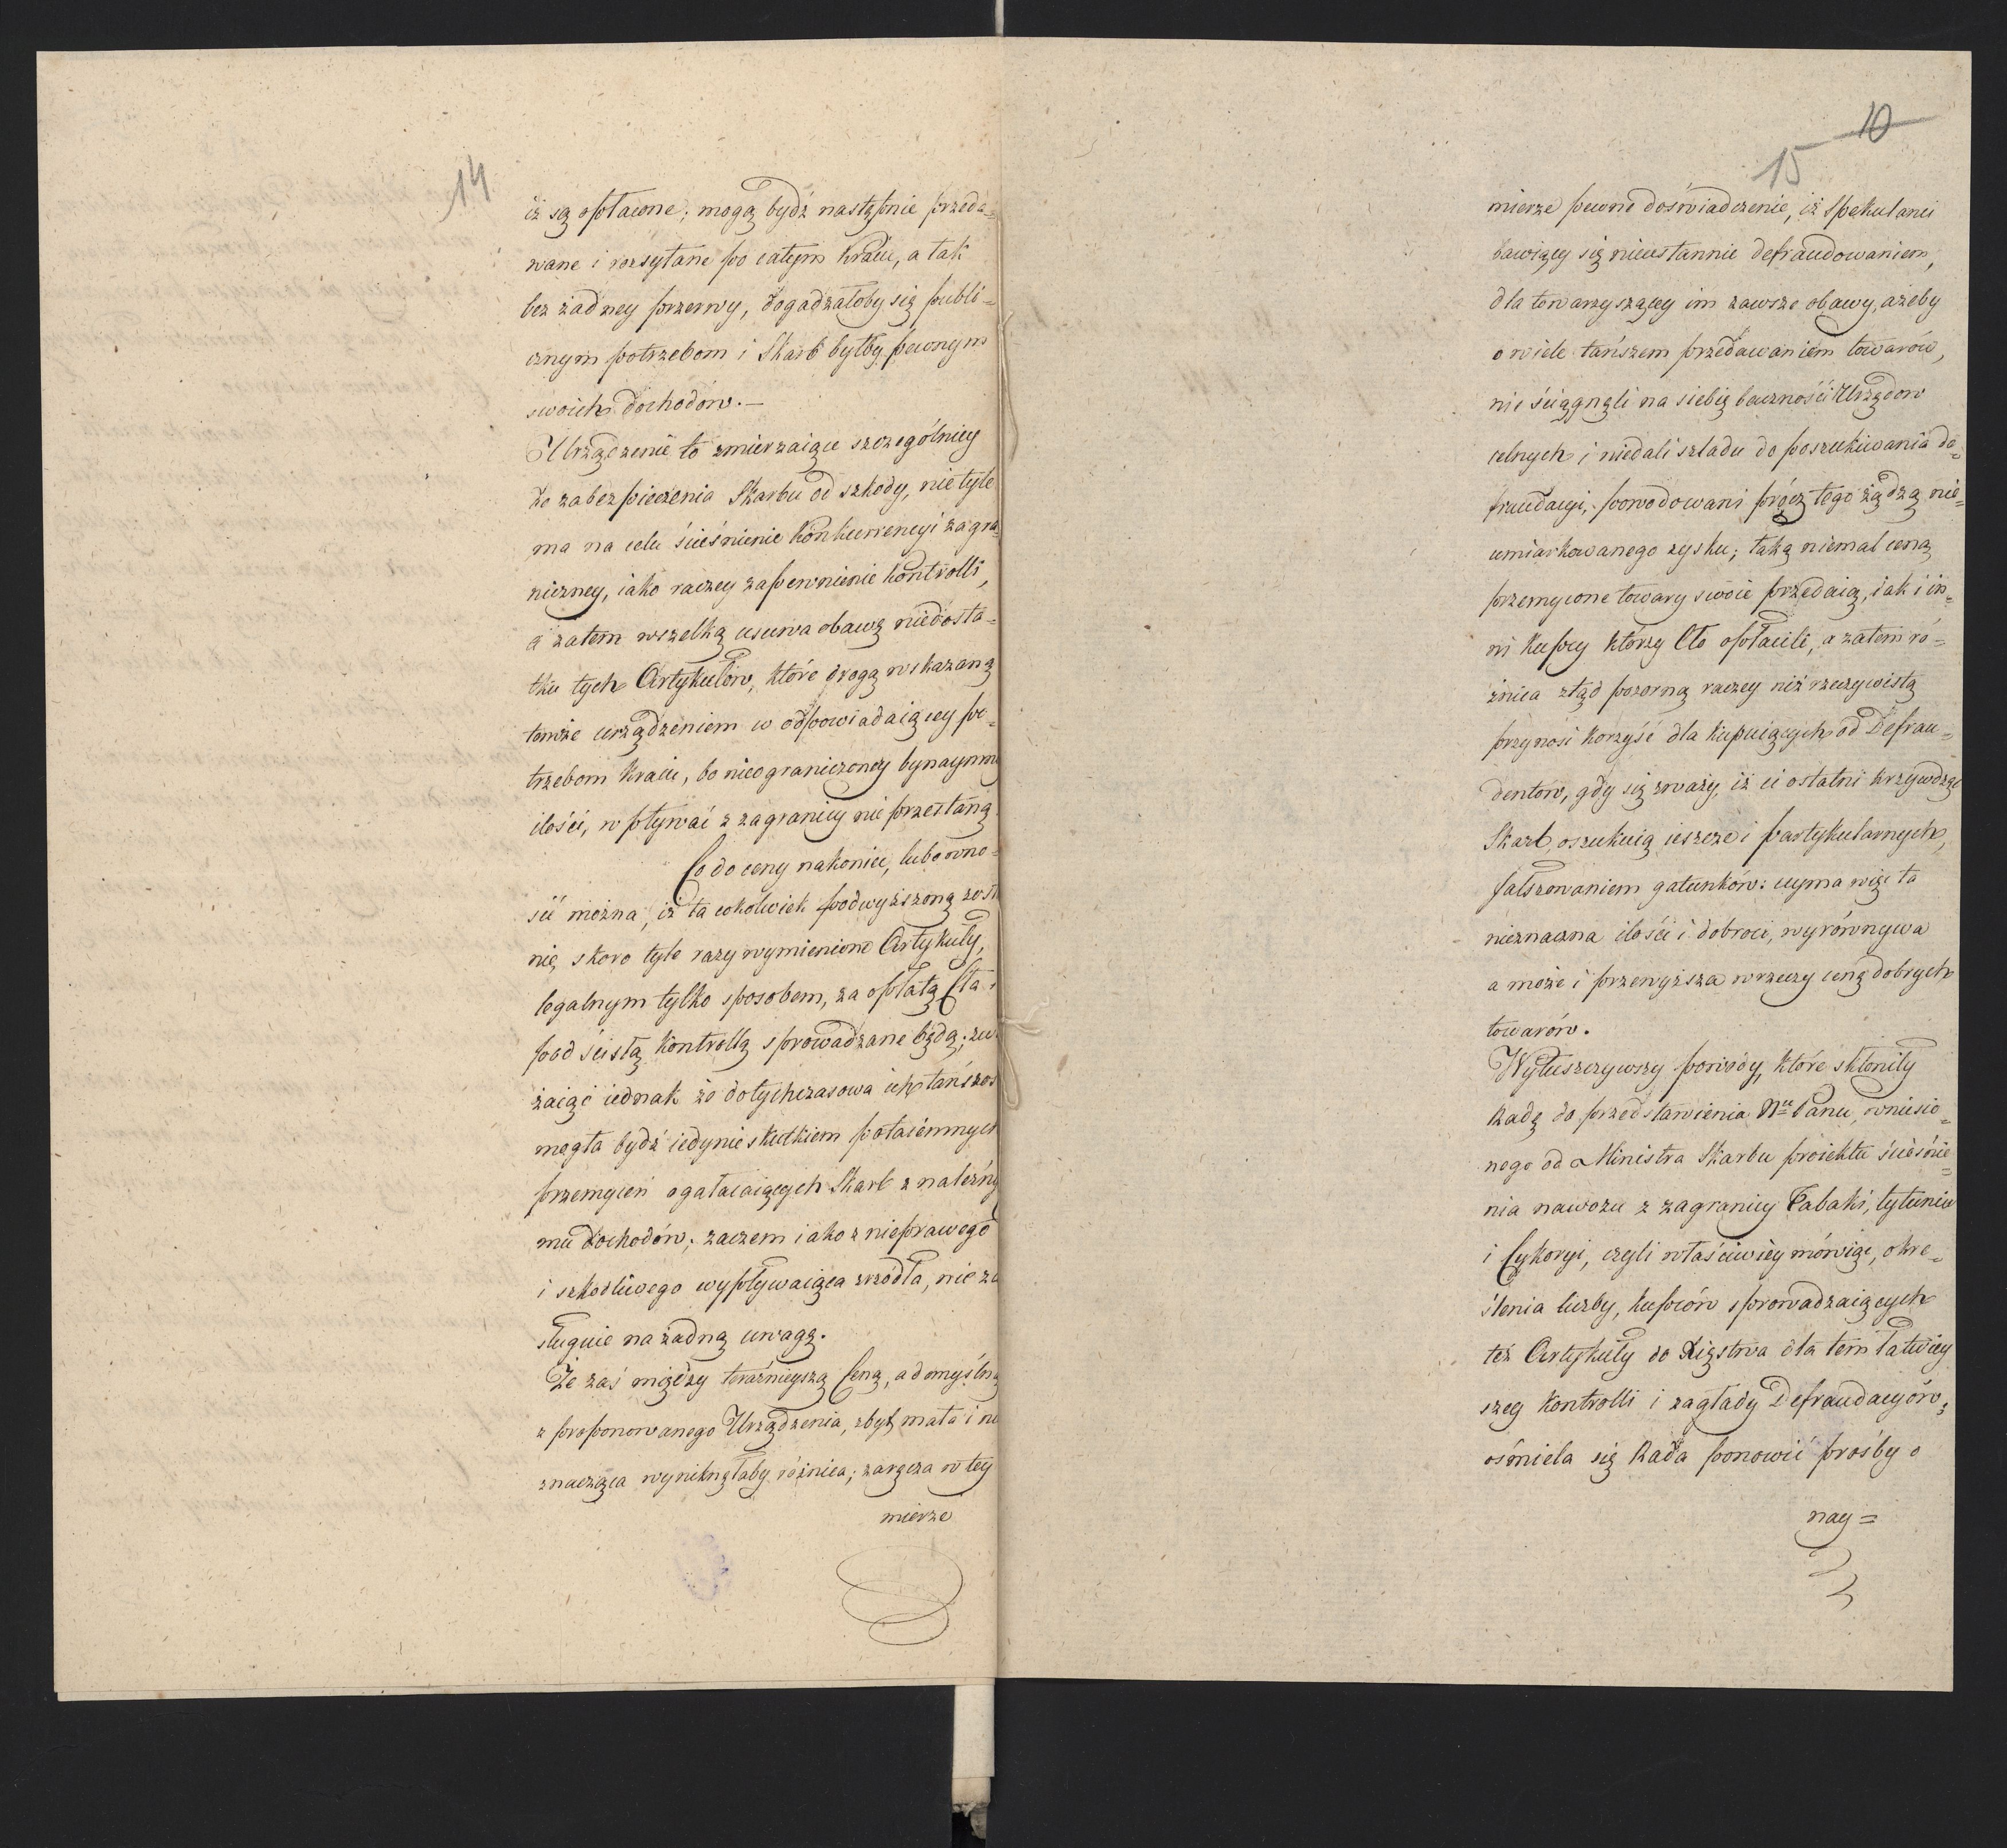 14
iż są opłacone; mogą bydź następnie przeda=
wane i rozsyłane po całym Kraiu, a tak
bez żadney przerwy, dogadzałoby się publi=
cznym potrzebom i Skarb byłby pewnym
swoich dochodów. —
Urządzenie to zmierzaiące szczególniey
do zabezpieczenia Skarbu od szkody, nie tyle
ma na celu ścieśnienie Konkurrencyi zagra
niczney, iako raczey zapewnienie Kontrolli,
a zatem wszelką usuwa obawę niedosta=
tku tych Artykułów, które drogą wskazaną
temże urządzeniem w odpowiadaiącey po=
trzebom Kraiu, bo nieograniczoney bynaymniey
ilości, wpływać z zagranicy nie przestaną.
Co do ceny nakoniec, lubo wno=
sić można, iż ta cokolwiek podwyższoną zosta
nie, skoro tyle razy wymienione Artykuły,
legalnym tylko sposobem, za opłatą Cła i
pod ścisłą Kontrollą sprowadzane będą; zwa
żaiąc iednak że dotychczasowa ich tańszość
mogła bydź iedynie skutkiem potaiemnych
przemyceń ogałacaiących Skarb z należny
mu dochodów; zaczem iako z nieprawego
i szkodliwego wypływaiąca źrzódła, nie za
sługuie na żadną uwagę.
Że zaś między teraźnieyszą Ceną, a domyślną
z proponowanego Urządzenia, zbyt mała i nie
znacząca wyniknęłaby różnica; zaręcza w tey
mierze
10
15
mierze pewne doświadczenie, iż Spekulanci
bawiący się nieustannie defraudowaniem,
dla towarzyszącey im zawsze obawy, ażeby
o wiele tańszem przedawaniem towarów,
nie ściągnęli na siebie baczności Urzędow
celnych i niedali szladu do poszukiwania de=
fraudacyi, powodowani prócz tego żądzą nie=
umiarkowanego zysku; taką niemal ceną
przemycone towary swoie przedaią, iak i in=
ni kupcy którzy Cło opłacili, a zatem ró=
żnica ztąd pozorną raczey niż rzeczywistą
przynosi korzyść dla kupuiących od Defrau=
dentów, gdy się zważy, iż ci ostatni krzywdząc
Skarb, oszukuią ieszcze i partykularnych,
fałszowaniem gatunków: uyma więc ta
nieznaczna ilości i dobroci, wyrównywa
a może i przewyższa w rzeczy cenę dobrych
towarów.
Wyłuszczywszy powody, które skłoniły
Radę do przedstawienia Nu Panu, wniesio=
nego od Ministra Skarbu proiektu ścieśnie=
nia nawozu z zagranicy Tabaki, tytuniu
i Cykoryi, czyli właściwiey mówiąc, okre=
ślenia liczby, kupców sprowadzaiących
też Artykuły do Xięstwa dla tem łatwiey
szey Kontrolli i zagłady Defraudacyów;
ośmiela się Rada ponowić prośby o
nay=